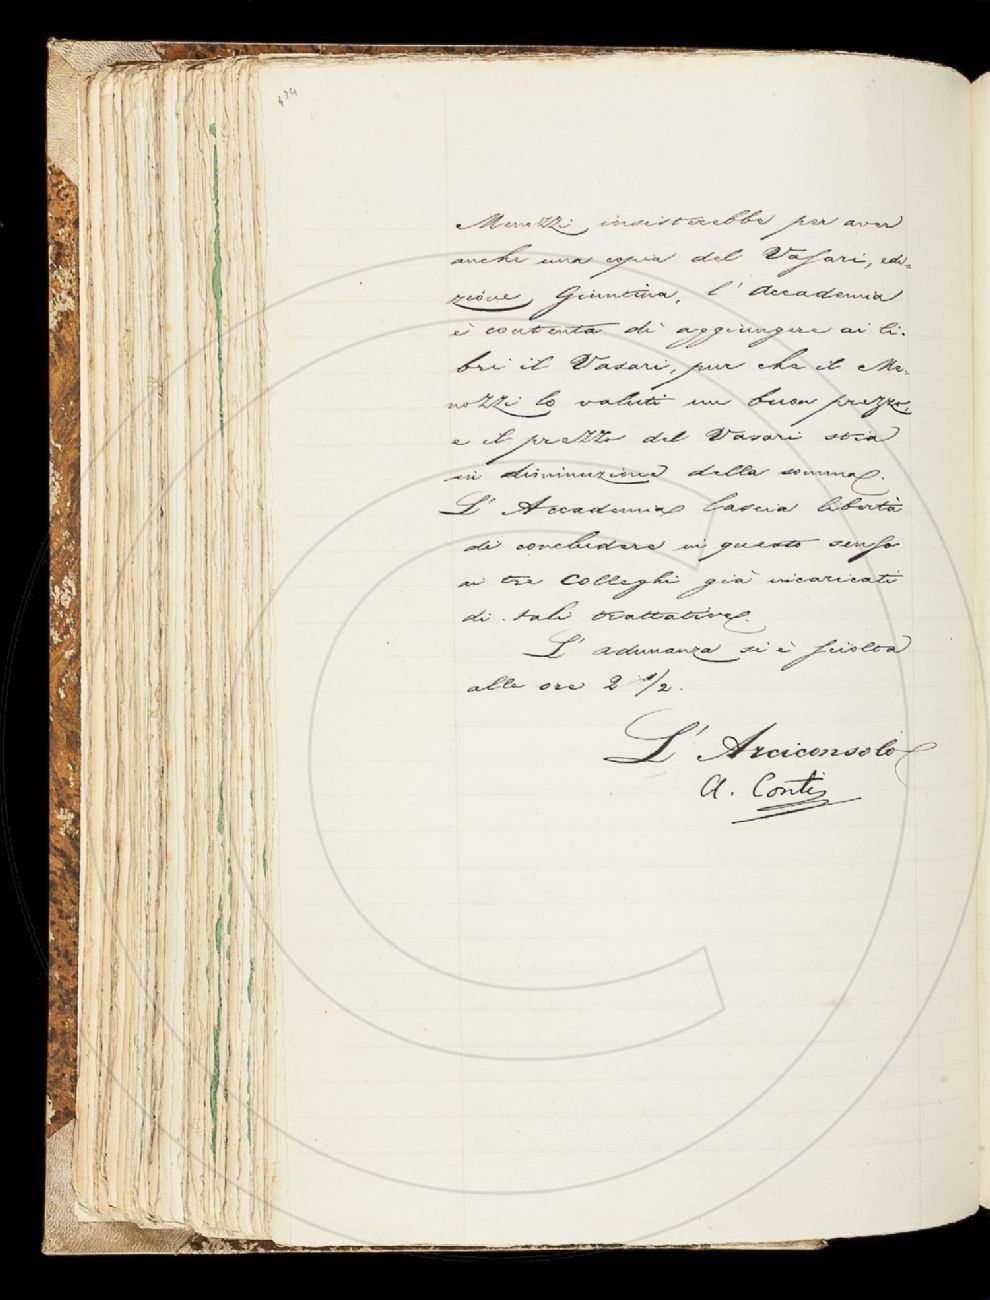 434
Menozzi insisterebbe per aver
anche una copia del Vasari, edi=
zione Giuntina, l'Accademia
è contenta di aggiungere ai li-
bri il Vasari, pur che il Me-
nozzi lo valuti un buon prezzo,
e il prezzo del Vasari stia
in diminuzione della somma.
L'Accademia lascia libertà
di concludere in questo senso
ai tre Colleghi già incaricati
di tali trattative.
L'adunanza si è sciolta
alle ore 2 1/2.
L'Arciconsolo
A. Conti